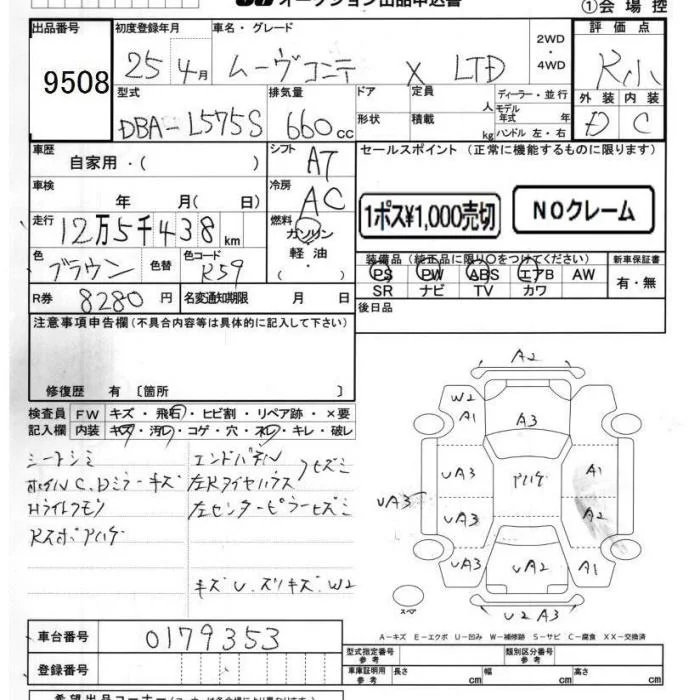 オークション出品申込書
①会場控
出品番号 初度登録年月 車名・グレード 評価点
9508 25年4月 ムーヴコンテ X LTD 2WD・4WD R小
型式 排気量 ドア 定員 人 ディーラー・並行 外装 内装
DBA-L575S 660cc 形状 積載 kg モデル年式 年 ハンドル 左・右 D C
車歴 自家用・( ) シフト AT セールスポイント(正常に機能するものに限ります)
車検 年 月( 日) 冷房 AC
1ポス¥1,000売切 NOクレーム
走行 12万5千438km 燃料 ガソリン
軽油
( ・ )
色 ブラウン 色替 色コード R59
装備品(純正品に限り○をつけてください) 新車保証書
PS PW ABS エアB AW 有・無
SR ナビ TV カワ
R券 8280円 名変通知期限 月 日
後日品
注意事項申告欄(不具合内容等は具体的に記入して下さい)
修復歴 有〔箇所 〕
検査員 FW キズ・飛石・ヒビ割・リペア跡・×要
記入欄 内装 キズ・汚レ・コゲ・穴・ネレ・キレ・破レ
シートシミ
ホイルC,Dミラーキズ
Hライトクモリ
Rスポアハゲ
左Rタイヤハウス
左センターピラーヒズミ
キズU.ズリキズ.W2
A2
W2
A1
A3
UA3 アハゲ A1
UA3
UA3 A2
UA3 UA2 A1
U2 A3
スペア
A−キズ E−エクボ U−凹み W−補修跡 S−サビ C−腐食 XX−交換済
車台番号 0179353
登録番号
型式指定番号 参考 類別区分番号 参考
車庫証明用 参考 長さ cm 幅 cm 高さ cm